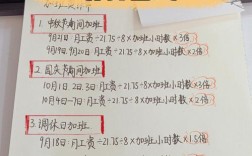 1. 中秋节期间加班
9月21日 月工资÷21.75÷8×加班小时数×3倍
9月19号、9月20号 月工资÷21.75÷8×加班小时数×2倍
2. 国庆节期间加班
10月1日 2日.3日 月工资÷21.75÷8×加班小时数×3倍
10月4日-7日 月工资÷21.75÷8×加班小时数×2倍
3. 调休日加班
9月18日 月工资÷21.75÷8×加班小时数×1.5倍